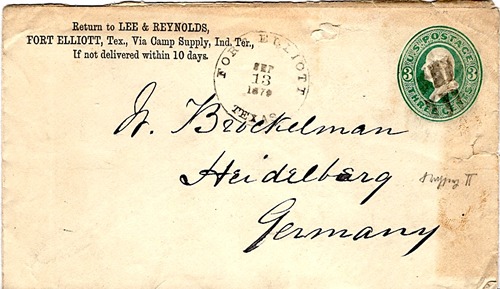 Return to LEE & REYNOLDS,
FORT ELLIOTT, Tex., Via Camp Supply, Ind. Ter.,
If not delivered within 10 days.
FORT ELLIOTT
SEP
13
1879
TEXAS
U.S. POSTAGE
3 3
W. Brockelman
Heidelberg
Germany